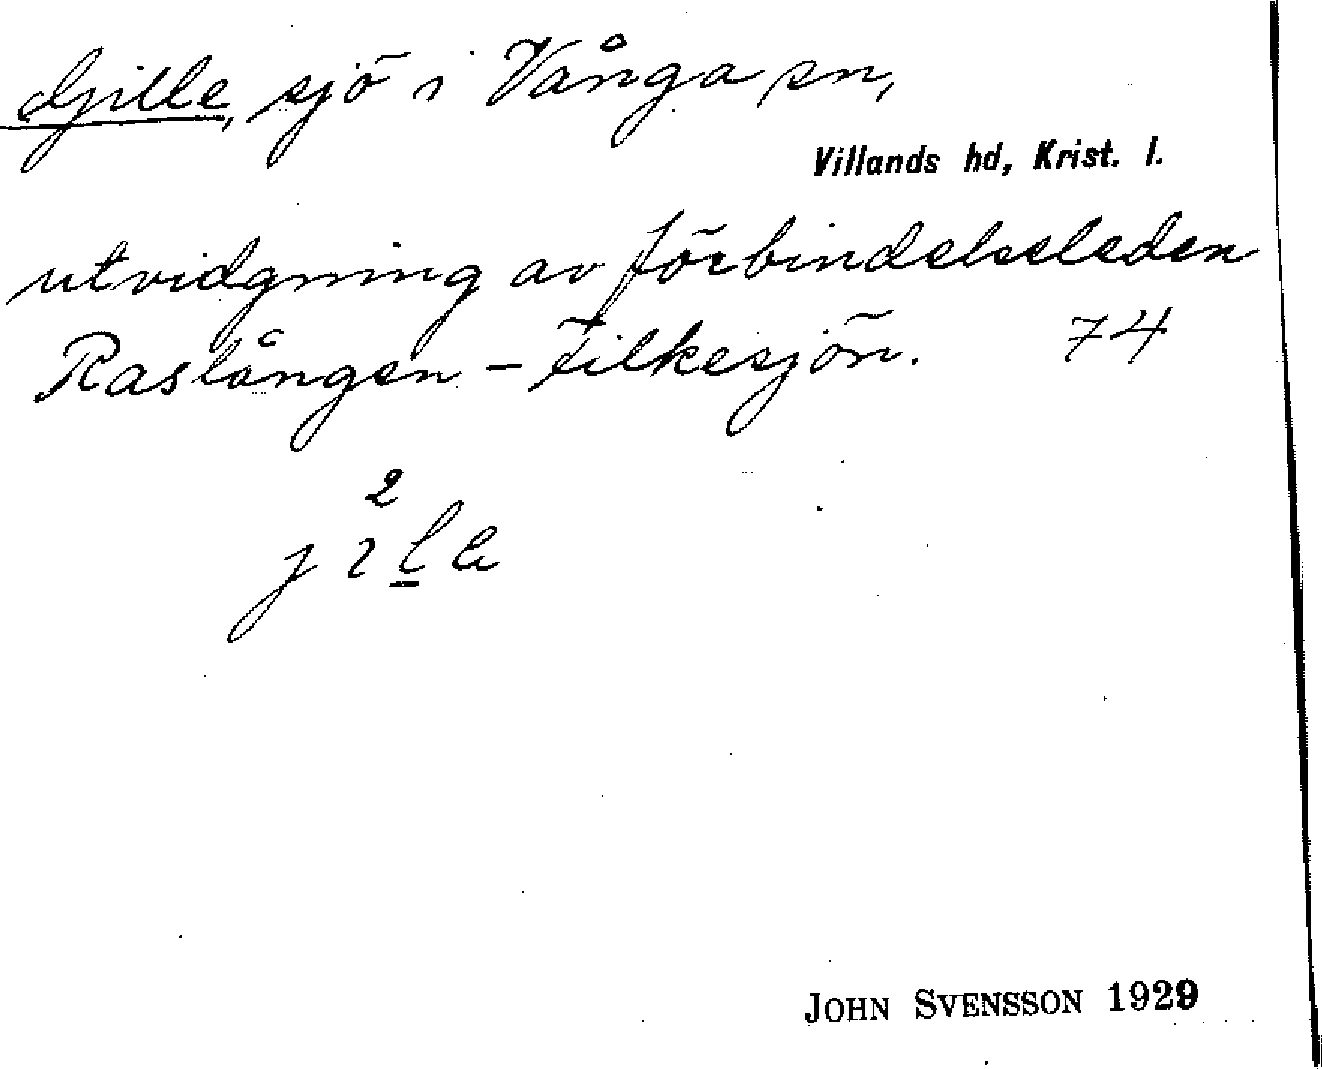 Gille, sjö i Vånga sn,
Villands hd, Krist. l.
utvidgning av förbindelseleden
Raslången - Filkesjön. 74
JOHN SVENSSON 1929